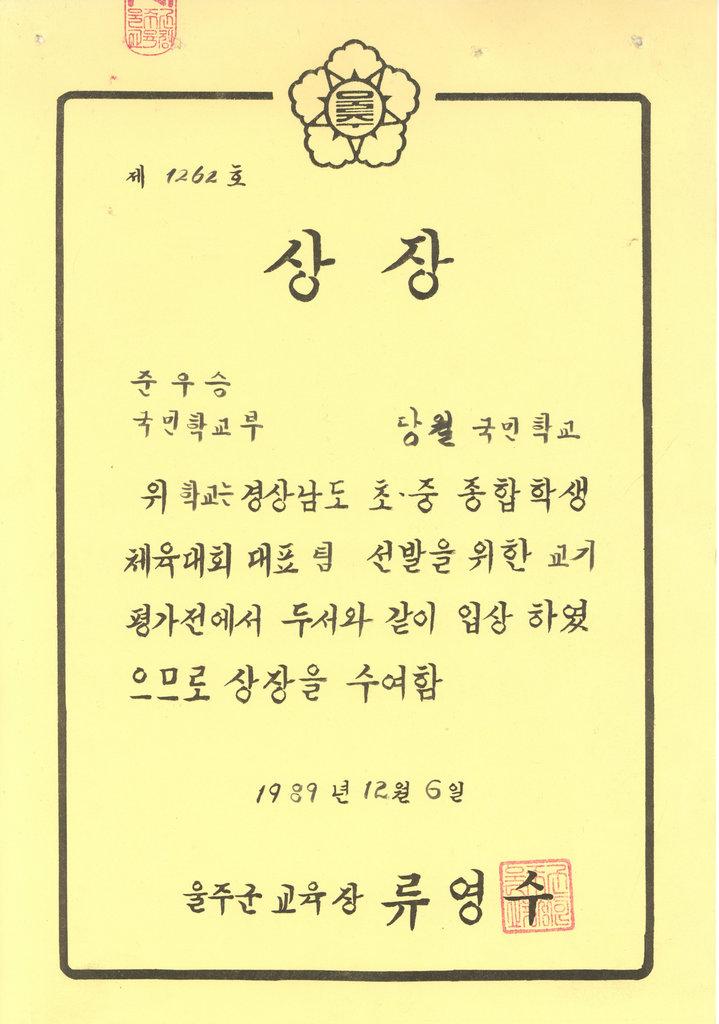 제 1262 호
상 장
준 우 승
국민학교부 당월 국민학교
위 학교는 경상남도 초·중 종합학생
체육대회 대표팀 선발을 위한 교기
평가전에서 두서와 같이 입상 하였
으므로 상장을 수여함
1989 년 12월 6일
울주군 교육장 류 영 수